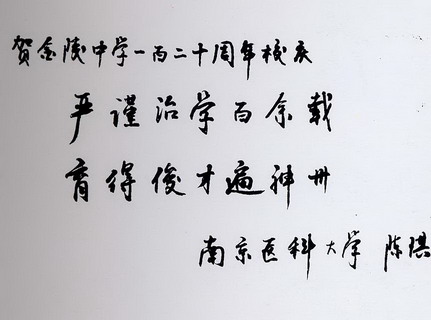 贺金陵中学一百二十周年校庆
严谨治学百余载
育得俊才遍神州
南京医科大学 陈琪